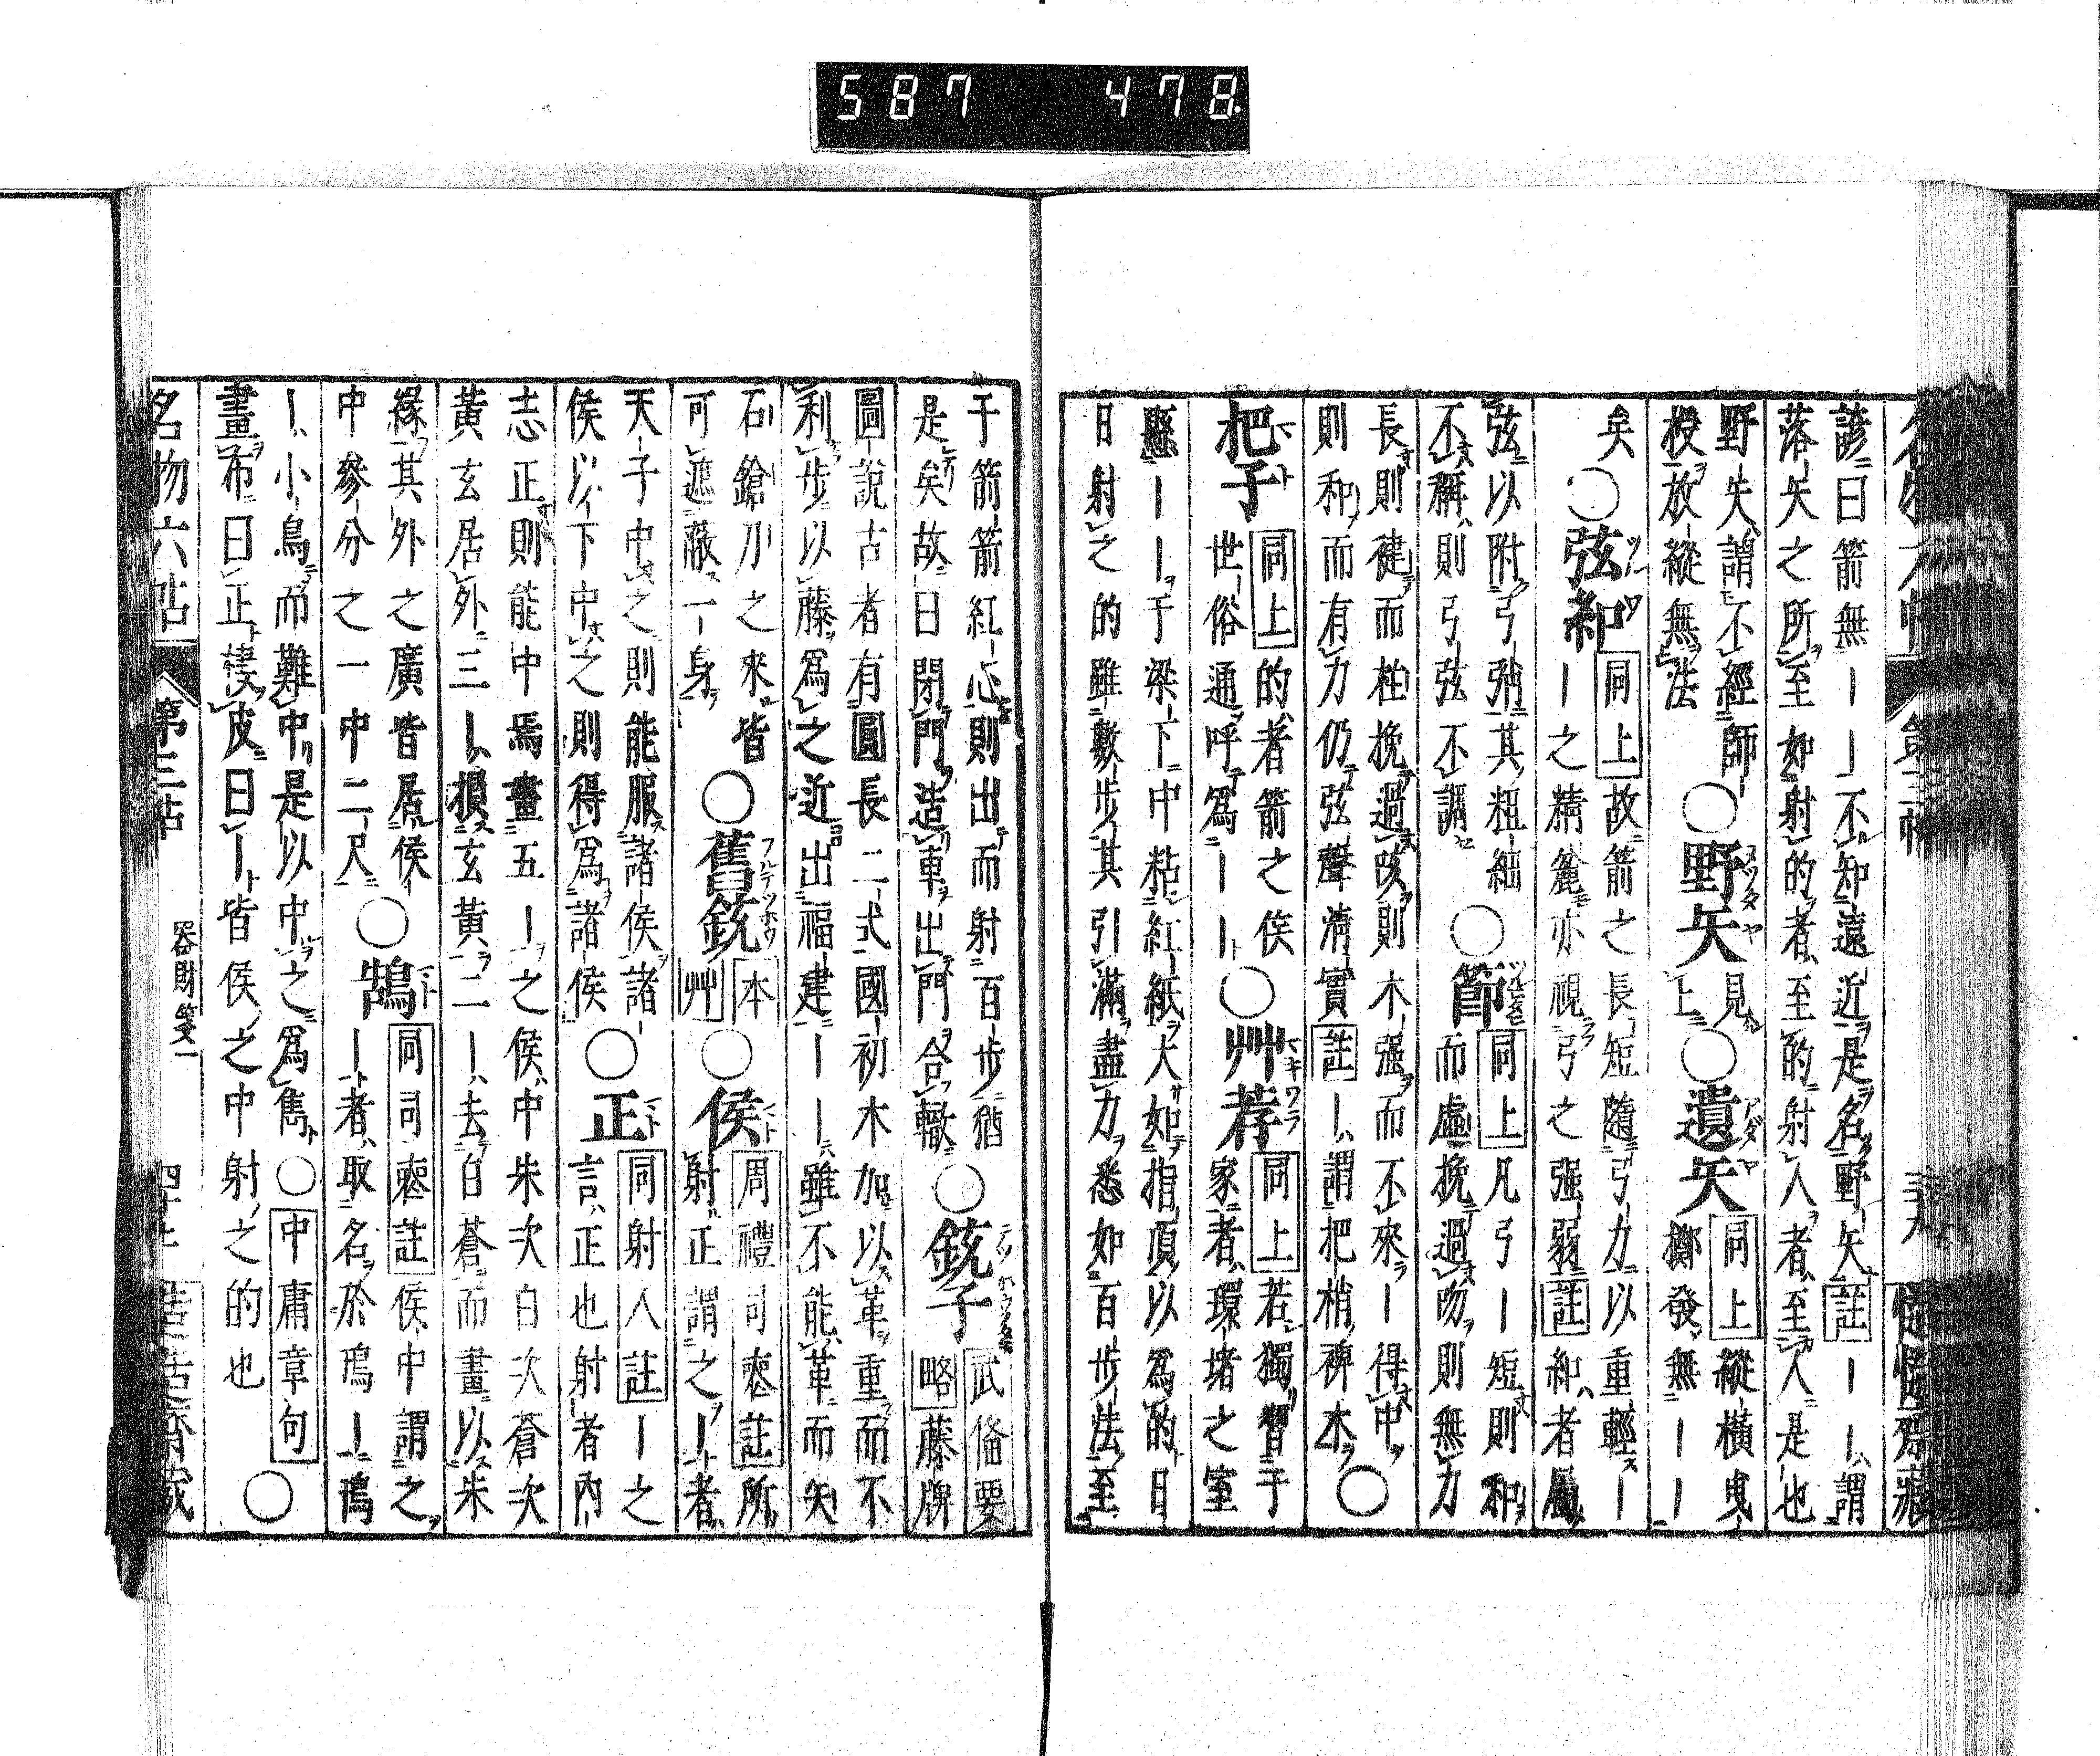 587 478
諺曰箭無｜｜不知遠近是名野矢註｜｜謂
落矢之所至如射的者至的射人者至人是也
野矢謂不經師
授放縱無法
○野矢
見
上
○遺矢
同上縱橫曳
擲發無｜｜
矣
○弦和
同上故箭之長短隨弓力以重輕｜
｜之精麄亦視弓之强弱註和者屬
弦以附弓弰其粗絀
不稱則弓弦不調
○節
同上凡弓｜短則和
而虛挽過吻則無力
長則健而柱挽過咳則木强而不來｜得中
則和而有力仍弦聲清實註｜謂把梢裨木○
把子
同上的者箭之侯
世俗通呼爲｜｜
○艸荐
同上若獨習于
家者環堵之室
懸｜｜于梁下中粘紅紙大如指頂以爲的日
日射之的雖數步其引滿盡力悉如百步法至
于箭箭紅心則出而射百步猶
是矣故曰閉門造車出門合轍
○銃子
武俻要
略藤牌
圖說古者有圓長二式國初木加以革重而不
利步以藤爲之近出福建｜｜雖不能革而矢
石鎗刀之來皆
可遮蔽一身
○舊銃
フルテツホウ
本
艸
○侯
マト
周禮司裘註所
射正謂之｜者
天子中之則能服諸侯諸｜
侯以下中之則得爲諸侯
○正
マト
同射人註｜之
言正也射者內
志正則能中焉畫五｜之侯中朱次白次蒼次
黃玄居外三｜損玄黃二｜去白蒼而畫以朱
緣其外之廣皆居侯
中參分之一中二尺
○鵠
マト
同司裘註侯中謂之
｜者取名於鳱｜鳱
｜小鳥而難中是以中之爲雋○中庸章句○
畫布曰正棲皮曰｜皆侯之中射之的也
名物六帖 第三帖 器財箋一